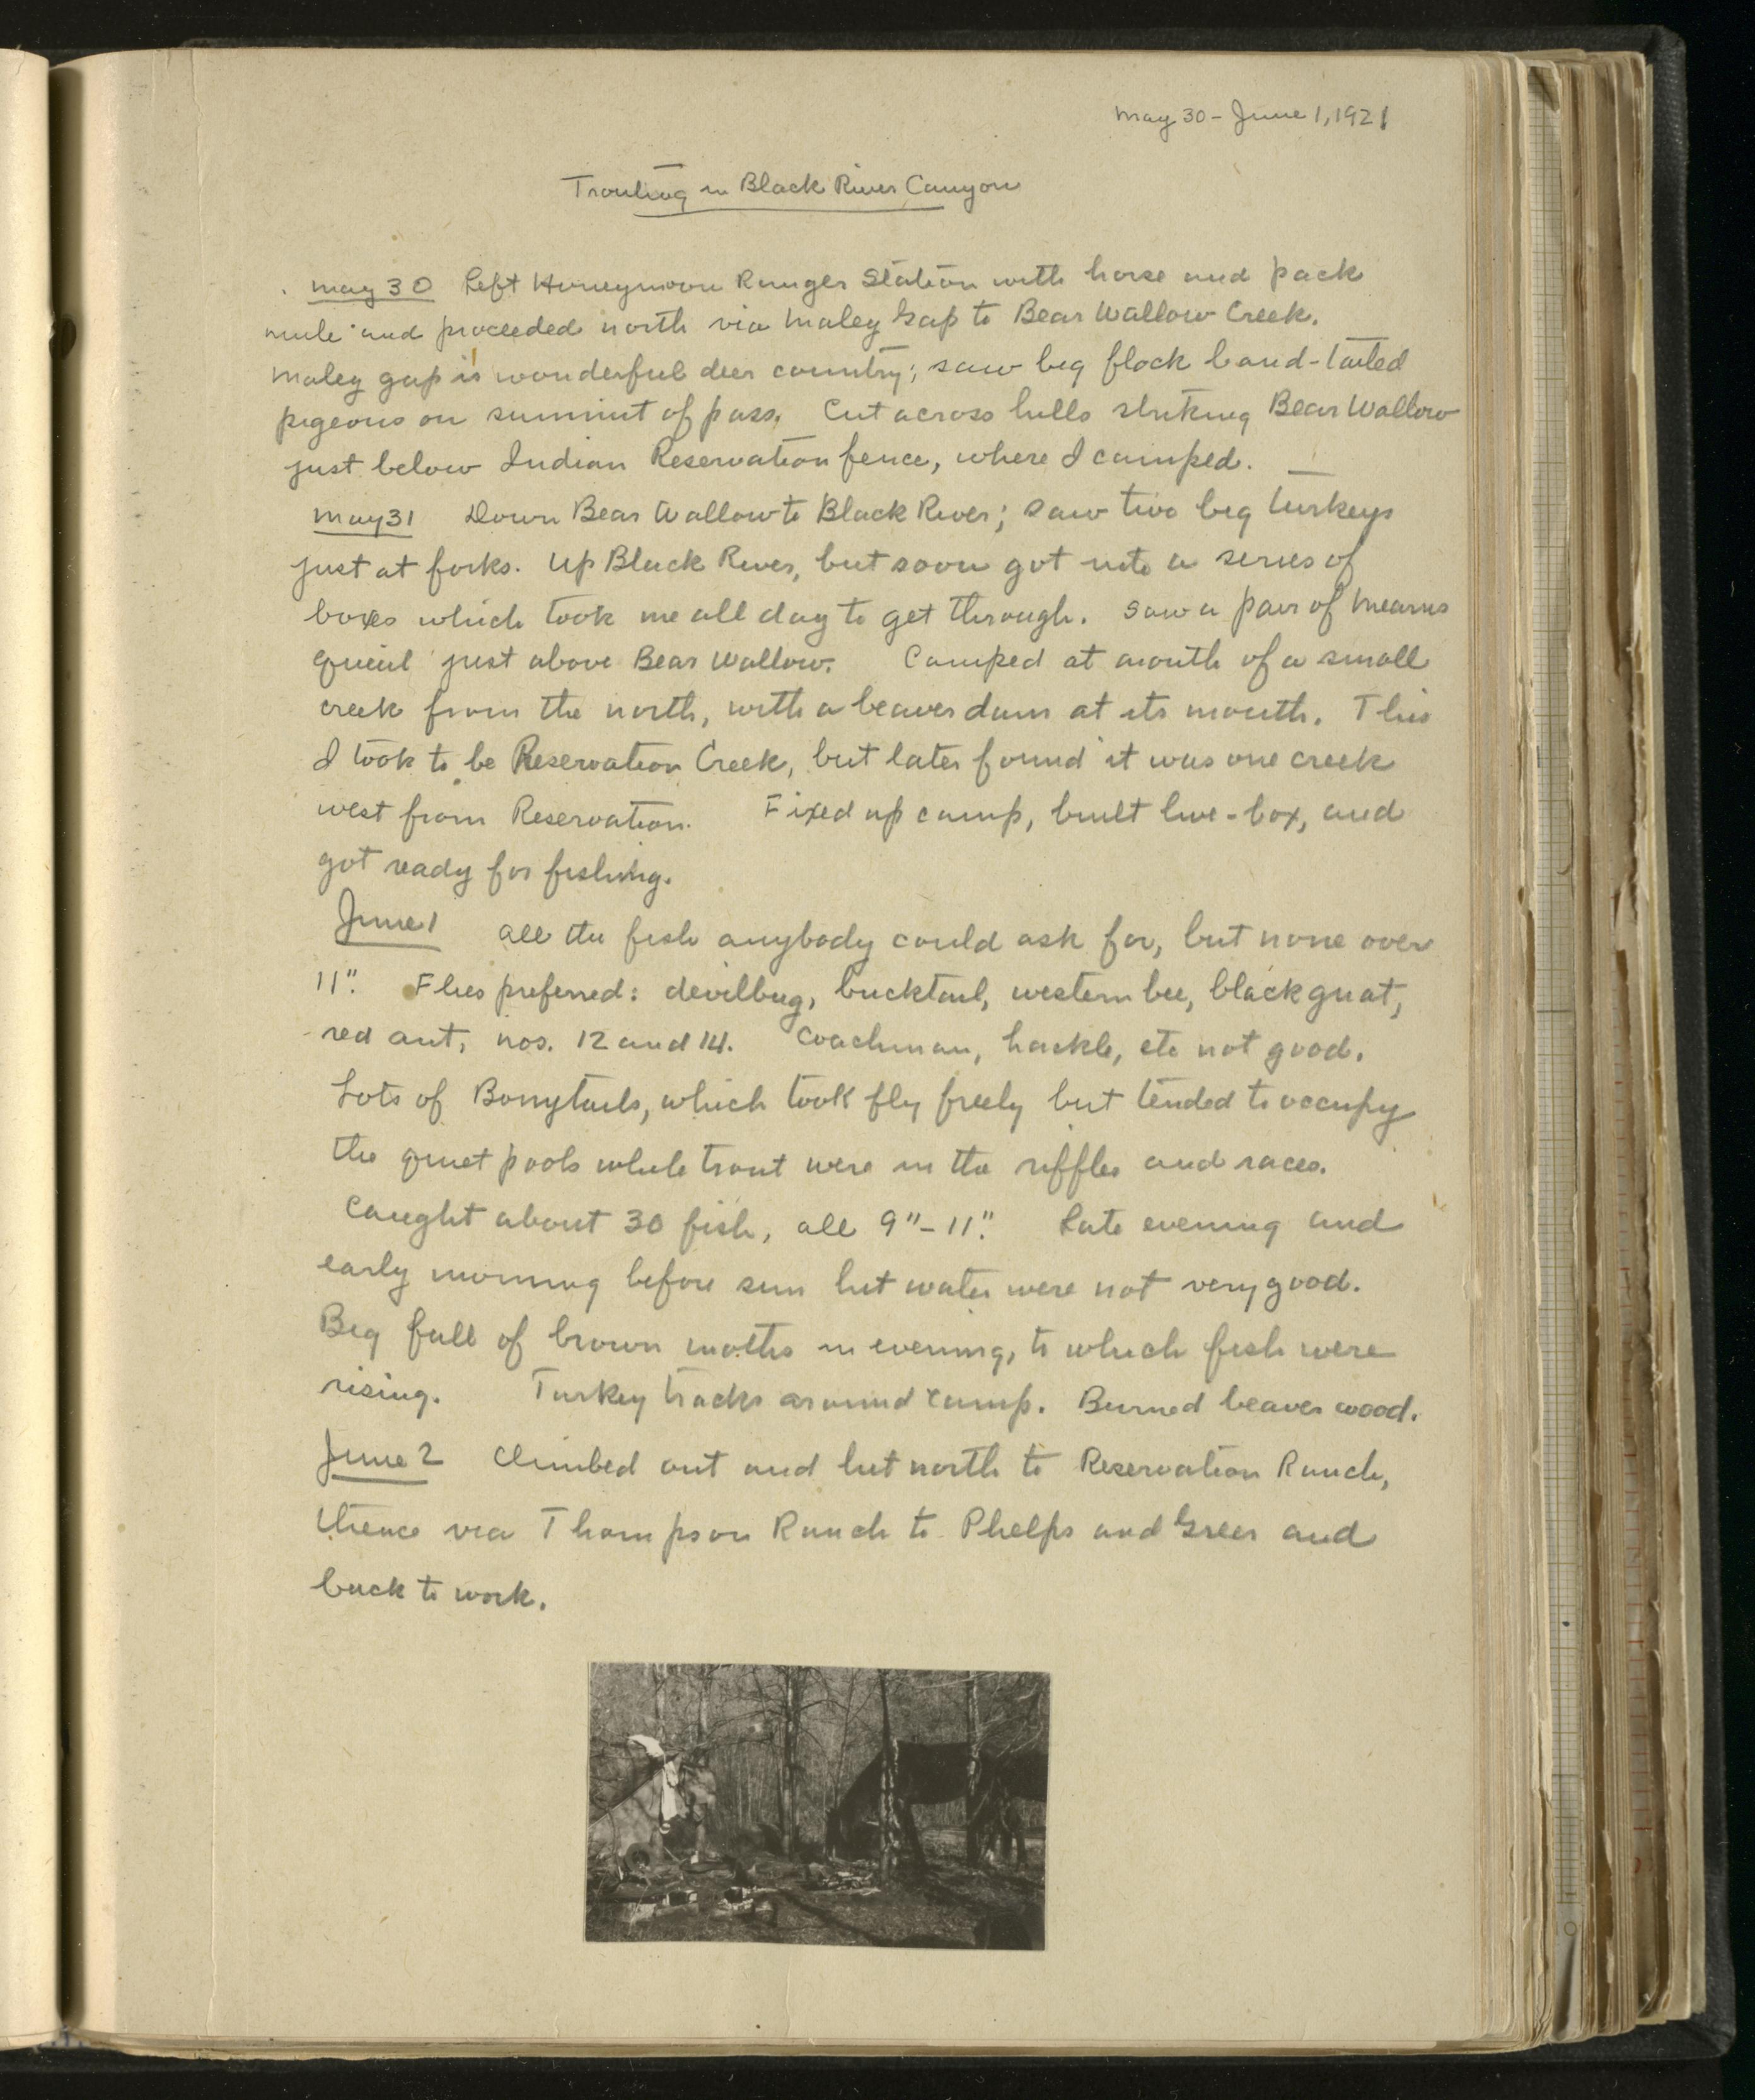 May 30 - June 1, 1921
Trouting in Black River Canyon
May 30 Left Honeymoon Ranger Station with horse and pack
mule and proceeded north via Maley Gap to Bear Wallow Creek.
Maley gap is wonderful deer country; saw big flock band-tailed
pigeons on summit of pass. Cut across hills striking Bear Wallow
just below Indian Reservation fence, where I camped.
May 31 Down Bear Wallow to Black River; saw two big turkeys
just at forks. Up Black River, but soon got into a series of
boxes which took me all day to get through. Saw a pair of Mearns
Queuil just above Bear Wallow. Camped at mouth of a small
creek from the north, with a beaver dam at its mouth. This
I took to be Reservation Creek, but later found it was one creek
west from Reservation. Fixed up camp, built live-box, and
got ready for fishing.
June 1 All the fish anybody could ask for, but none over
11". Flies preferred: devilbug, bucktail, western bee, black gnat,
red ant, nos. 12 and 14. Coachman, hackle, etc not good.
Lots of Bonytails, which took fly freely but tended to occupy
the quiet pools while trout were in the riffles and races.
Caught about 30 fish, all 9"-11". Late evening and
early morning before sun hit water were not very good.
Big fall of brown moths in evening, to which fish were
rising. Turkey tracks around camp. Burned beaver wood.
June 2 Climbed out and hit north to Reservation Ranch,
thence via Thompson Ranch to Phelps and Greer and
back to work.